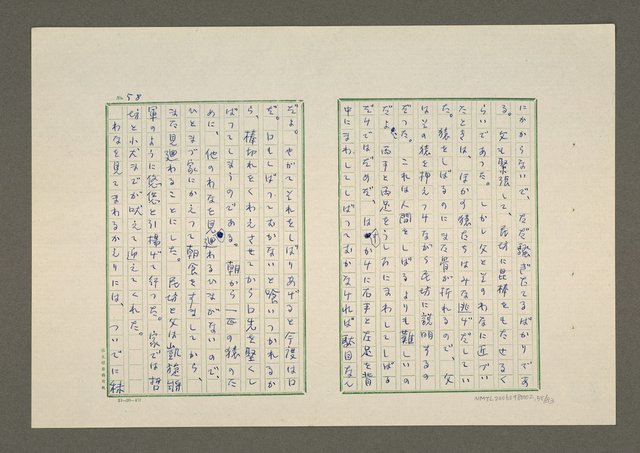 にかからないで、ただ騒ぎたてるばかりであ
る。父も緊張して、昆坊に昆棒をもたせるく
らいであった。しかし父とそのわなに近づい
たときは、ほかの猿たちはみな逃げだしてい
た。猿をしばるのにまた骨が折れるので、父
はその猿を押えつけながら昆坊に説明するの
だった。これは人間をしばるよりも難しいの
だよ。両手と両足をうしろにまわしてしばる
だけではだめだ。はじめに右手と左足を背
中にまわしてしばってむかなければ駄目なん
だよ。やがてそれをしばりあげると今度は口
だ。口もしばっておかないと喰いつかれるか
ら、棒切れをくわえさせてから口先を堅くし
ばってしまうのである。朝から一匹の猿のた
めに、他のわなを見廻わるひまがないので、
ひとまづ家にかえって朝食をすましてから、
また見廻わることにした。昆坊と父は凱旋将
軍のように悠悠と引揚げて行った。家では哲
坊と小犬までが吠えて迎えてくれた。
わなを見てまわるかえりには、ついでに林
No. 58
NMTL20060980002